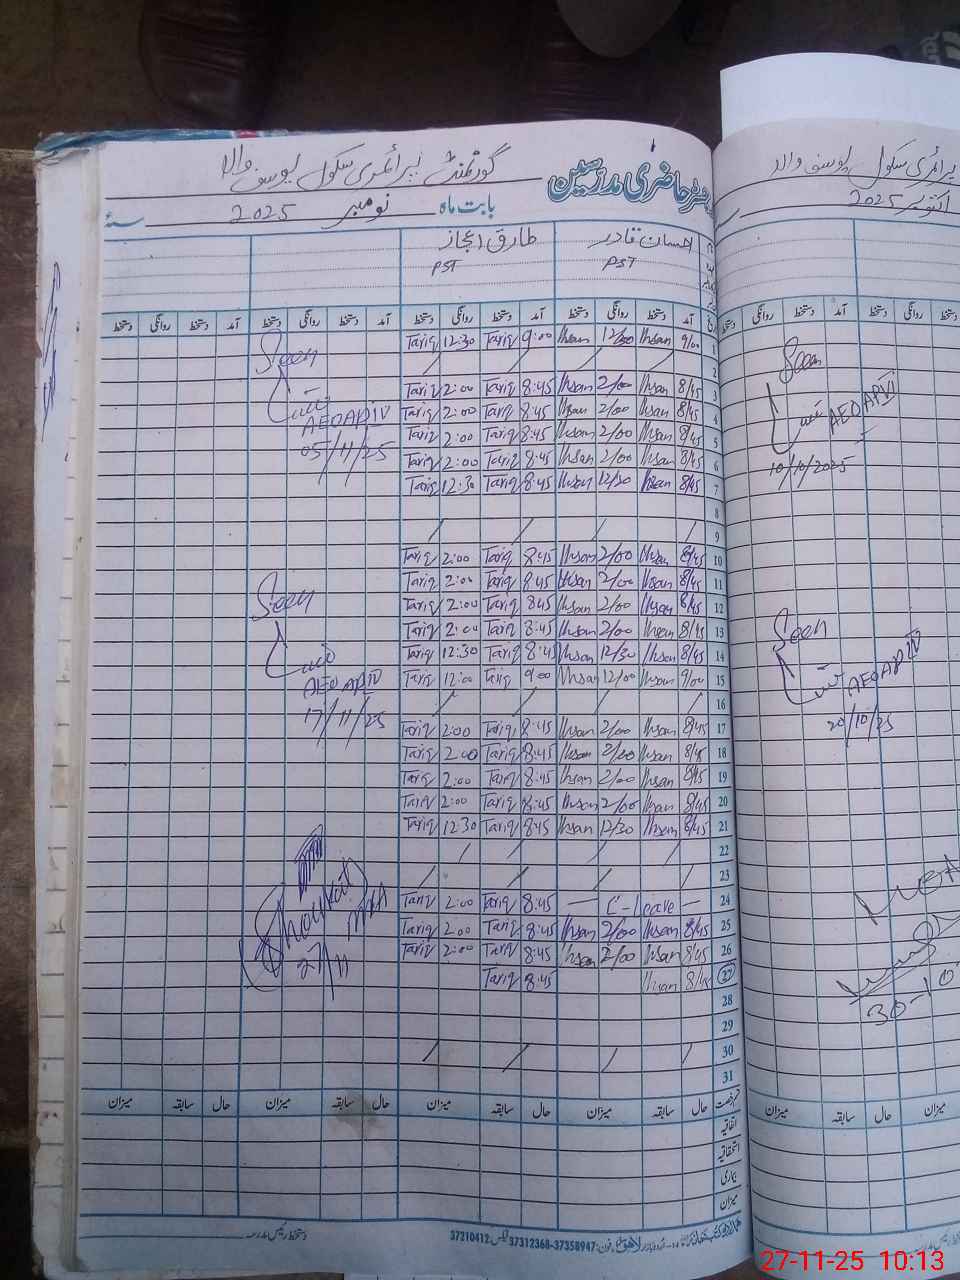 رجسٹر حاضری مدرسین گورنمنٹ پرائمری سکول یوسف والا
بابت ماہ نومبر 2025 سنہ
احسان قادر طارق اعجاز
PST PST
آمد دستخط روانگی دستخط آمد دستخط روانگی دستخط آمد دستخط روانگی دستخط آمد دستخط روانگی دستخط
1 9/00 Ihsan 12/30 Ihsan 9:00 Tariq 12:30 Tariq
2
3 8/45 Ihsan 2/00 Ihsan 8:45 Tariq 2:00 Tariq
4 8/45 Ihsan 2/00 Ihsan 8:45 Tariq 2:00 Tariq
5 8/45 Ihsan 2/00 Ihsan 8:45 Tariq 2:00 Tariq
6 8/45 Ihsan 2/00 Ihsan 8:45 Tariq 2:00 Tariq
7 8/45 Ihsan 12/30 Ihsan 8:45 Tariq 12:30 Tariq
8
9
10 8/45 Ihsan 2/00 Ihsan 8:45 Tariq 2:00 Tariq
11 8/45 Ihsan 2/00 Ihsan 8:45 Tariq 2:00 Tariq
12 8/45 Ihsan 2/00 Ihsan 8:45 Tariq 2:00 Tariq
13 8/45 Ihsan 2/00 Ihsan 8:45 Tariq 2:00 Tariq
14 8/45 Ihsan 12/30 Ihsan 8:45 Tariq 12:30 Tariq
15 9/00 Ihsan 12/00 Ihsan 9:00 Tariq 12:00 Tariq
16
17 8/45 Ihsan 2/00 Ihsan 8:45 Tariq 2:00 Tariq
18 8/45 Ihsan 2/00 Ihsan 8:45 Tariq 2:00 Tariq
19 8/45 Ihsan 2/00 Ihsan 8:45 Tariq 2:00 Tariq
20 8/45 Ihsan 2/00 Ihsan 8:45 Tariq 2:00 Tariq
21 8/45 Ihsan 12/30 Ihsan 8:45 Tariq 12:30 Tariq
22
23
24 — C-Leave — 8:45 Tariq 2:00 Tariq
25 8/45 Ihsan 2/00 Ihsan 8:45 Tariq 2:00 Tariq
26 8/45 Ihsan 2/00 Ihsan 8:45 Tariq 2:00 Tariq
27 8/45 Ihsan 8:45 Tariq
28
29
30
31
Seen
AEOAPIV
05/11/25
Seen
AEOAPIV
17/11/25
Shoukat
MEA
27/11
حال سابقہ میزان حال سابقہ میزان حال سابقہ میزان سابقہ میزان
اتفاقیہ
استحقاقیہ
بیماری
میزان
لاہور فون: 37312368-37358947 فیکس: 37210412
دستخط رئیس مدرسہ
پرائمری سکول یوسف والا
اکتوبر 2025
دستخط روانگی دستخط آمد دستخط روانگی
Seen
AEOAPIV
10/10/2025
Seen
AEOAPIV
20/10/25
MEA
30-10
میزان سابقہ حال میزان
27-11-25 10:13